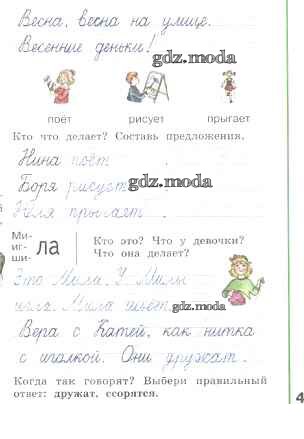 Весна, весна на улице.
Весенние деньки!
gdz.moda
поёт рисует прыгает
Кто что делает? Составь предложения.
Нина поёт .
Боря рисует
gdz.moda
Юля прыгает .
Ми-
иг-
ши-
ла
Кто это? Что у девочки?
Что она делает?
Это Мила. У Милы
игла. Мила шьёт.
gdz.moda
Вера с Катей, как нитка
с иголкой. Они дружат.
Когда так говорят? Выбери правильный
ответ: дружат, ссорятся.
4